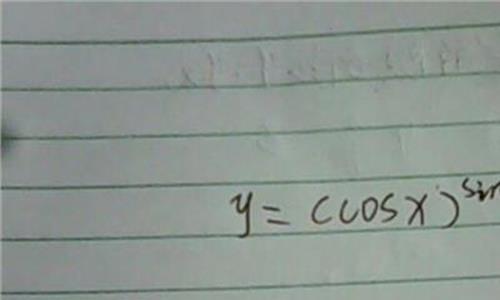 y = (cosx)^sin